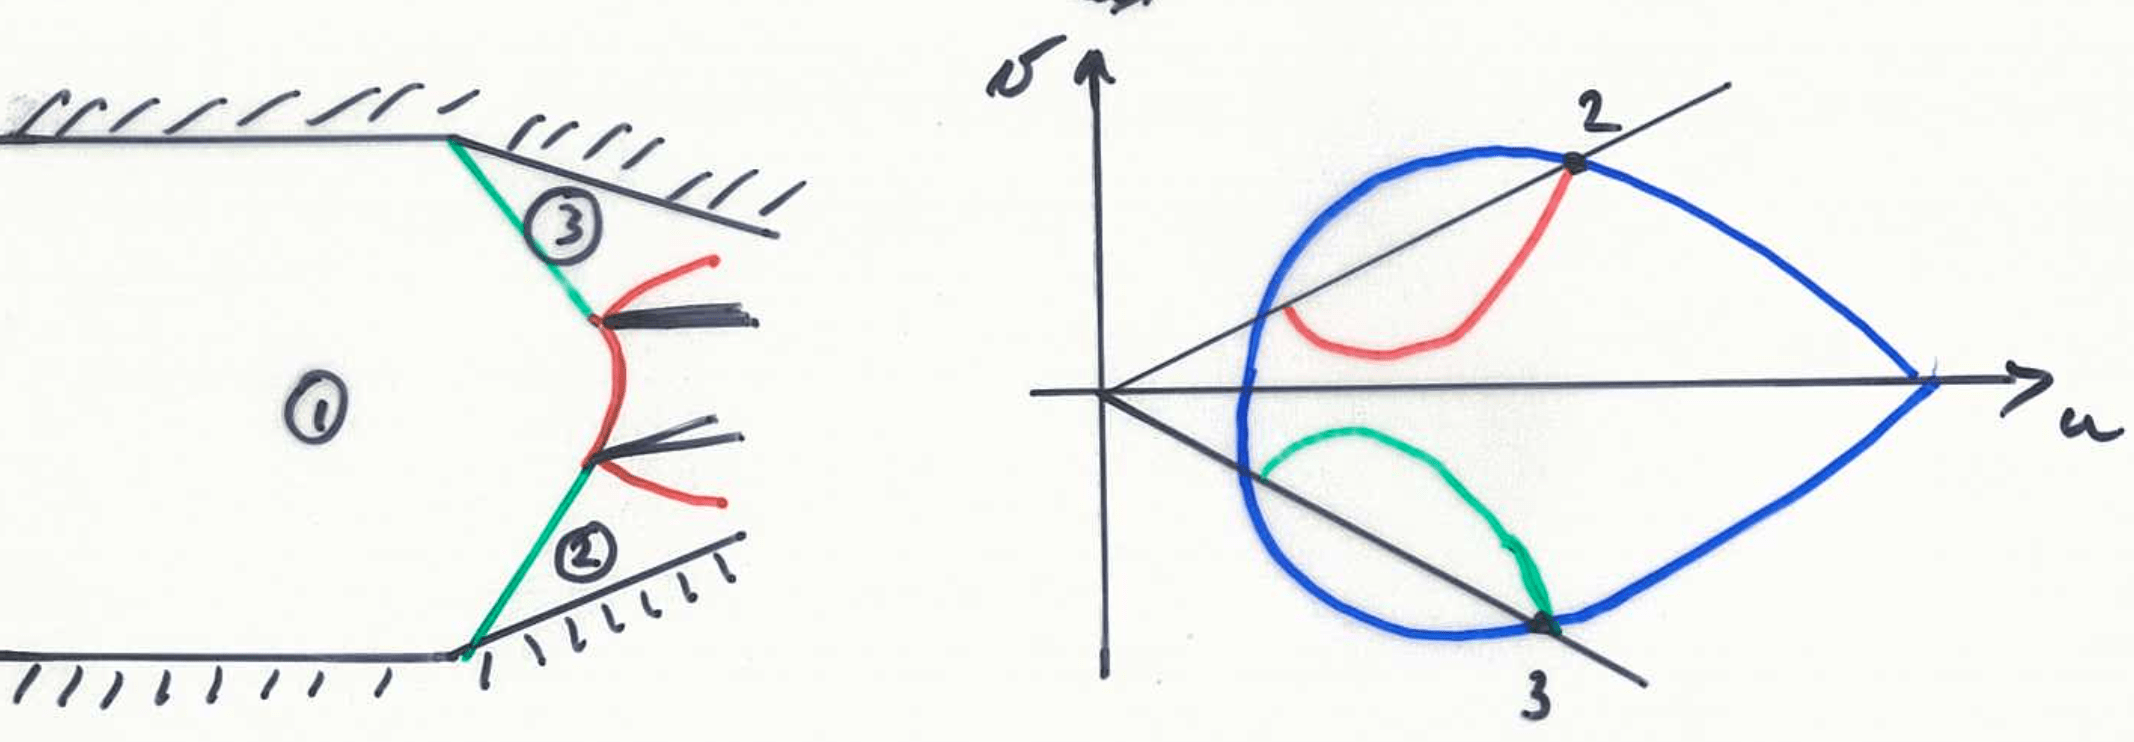 ③
①
②
v
2
u
3